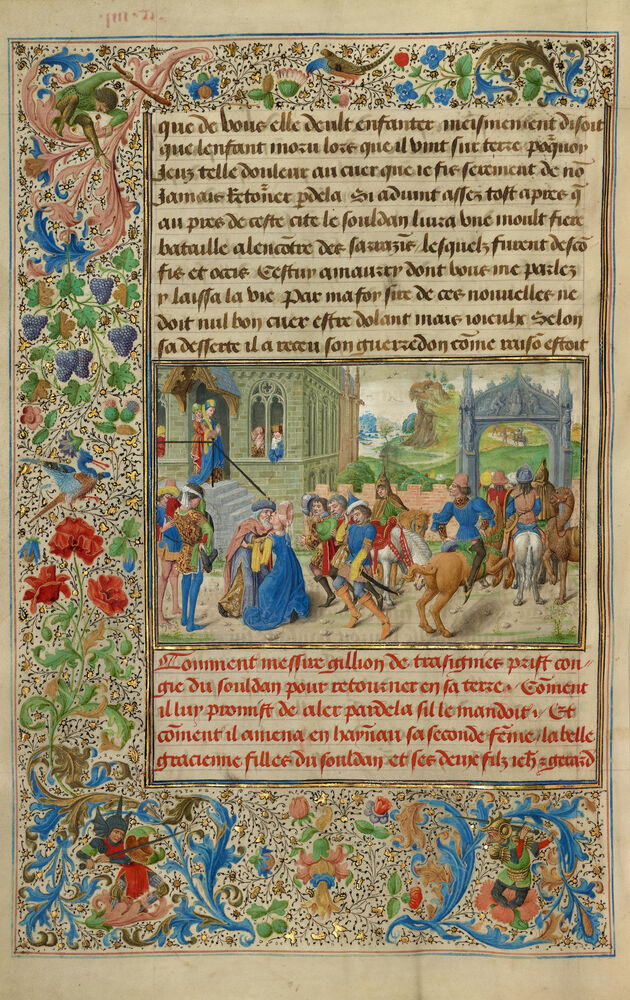 que de vous elle deult enfanter meismement disoit
que lenfant moru lors que il vint sur terre po9quoy
Jeuz telle douleur au cuer que ie fis serement de no
Jamais Retorner pdela Si aduint assez tost apres q
au pres de ceste cite le souldan liura vne moult fiere
bataille alencotre des sarrazis lesquelz furent desco
fis et occis Cestuy amaurry dont vous me parlez
y laissa la vie Par ma foy sire de ces nouuelles ne
doit nul bon cuer estre dolant mais ioieulx Selon
sa desserte il a receu son guerredon come raiso estoit
Comment messire gillion de trasignies prist con-
gie du souldan pour retourner en sa terre. Coment
il luy promist de aler pardela sil le mandoit. Et
coment il amena en haynau sa seconde feme la belle
gracienne filles du souldan et ses deux filz ieh z gerard